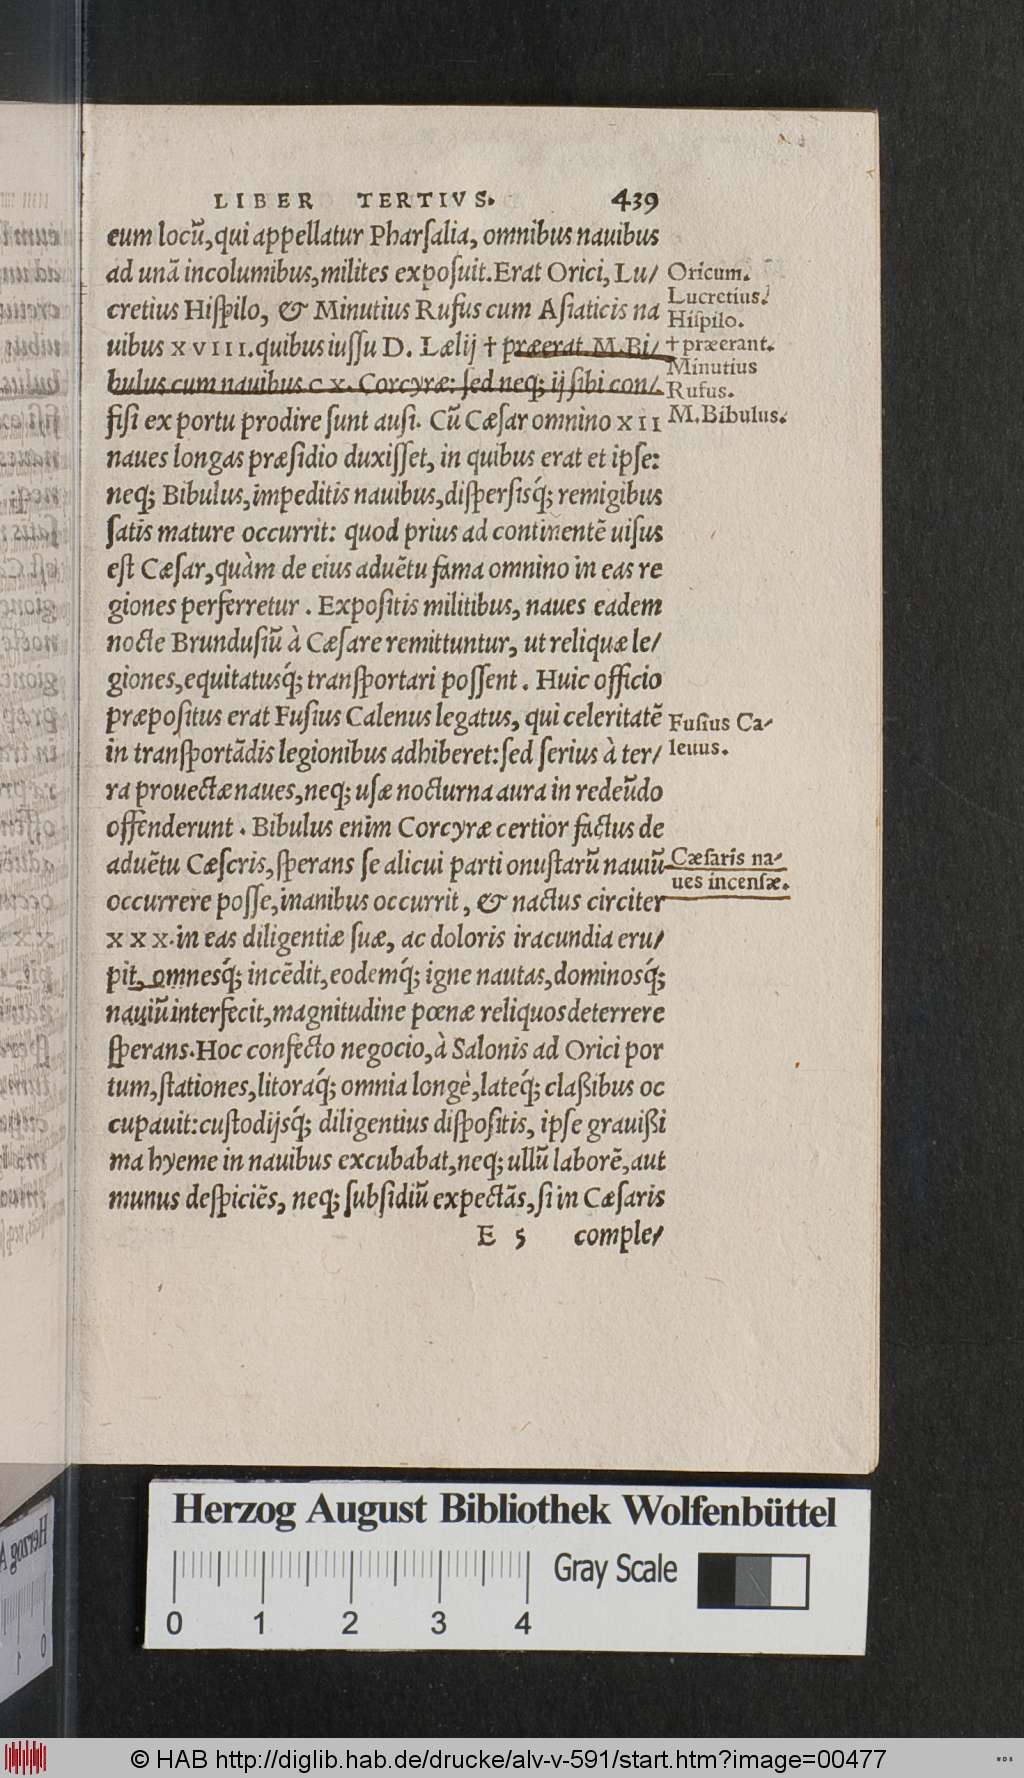 LIBER TERTIVS. 439
eum locū, qui appellatur Pharſalia, omnibus nauibus
ad unā incolumibus, milites expoſuit. Erat Orici, Lu/
cretius Hiſpilo, & Minutius Rufus cum Aſiaticis na
uibus XVIII. quibus iuſſu D. Lælij † præerat M. Bi/
bulus cum nauibus CX. Corcyræ: ſed neq; ij ſibi con/
fiſi ex portu prodire ſunt auſi. Cū Cæſar omnino XII
naues longas præſidio duxiſſet, in quibus erat et ipſe:
neq; Bibulus, impeditis nauibus, diſperſisq́; remigibus
ſatis mature occurrit: quod prius ad continentē uiſus
eſt Cæſar, quàm de eius aduētu fama omnino in eas re
giones perferretur. Expoſitis militibus, naues eadem
nocte Brunduſiū à Cæſare remittuntur, ut reliquæ le/
giones, equitatusq́; tranſportari poſſent. Huic officio
præpoſitus erat Fuſius Calenus legatus, qui celeritatē
in tranſportādis legionibus adhiberet: ſed ſerius à ter/
ra prouectæ naues, neq; uſæ nocturna aura in redeūdo
offenderunt. Bibulus enim Corcyræ certior factus de
aduētu Cæſcris, ſperans ſe alicui parti onuſtarū nauiū
occurrere poſſe, inanibus occurrit, & nactus circiter
XXX. in eas diligentiæ ſuæ, ac doloris iracundia eru/
pit, omnesq́; incēdit, eodemq́; igne nautas, dominosq́;
nauiū interfecit, magnitudine pœnæ reliquos deterrere
ſperans. Hoc confecto negocio, à Salonis ad Orici por
tum, ſtationes, litoraq́; omnia longè, lateq́; claßibus oc
cupauit: cuſtodijsq́; diligentius diſpoſitis, ipſe grauißi
ma hyeme in nauibus excubabat, neq; ullū laborē, aut
munus deſpiciēs, neq; ſubſidiū expectās, ſi in Cæſaris
E 5 comple/
Oricum.
Lucretius.
Hiſpilo.
† præerant.
Minutius
Rufus.
M. Bibulus.
Fuſius Ca-
leuus.
Cæſaris na-
ues incenſæ.
Herzog August Bibliothek Wolfenbüttel
Gray Scale
0 1 2 3 4
© HAB http://diglib.hab.de/drucke/alv-v-591/start.htm?image=00477